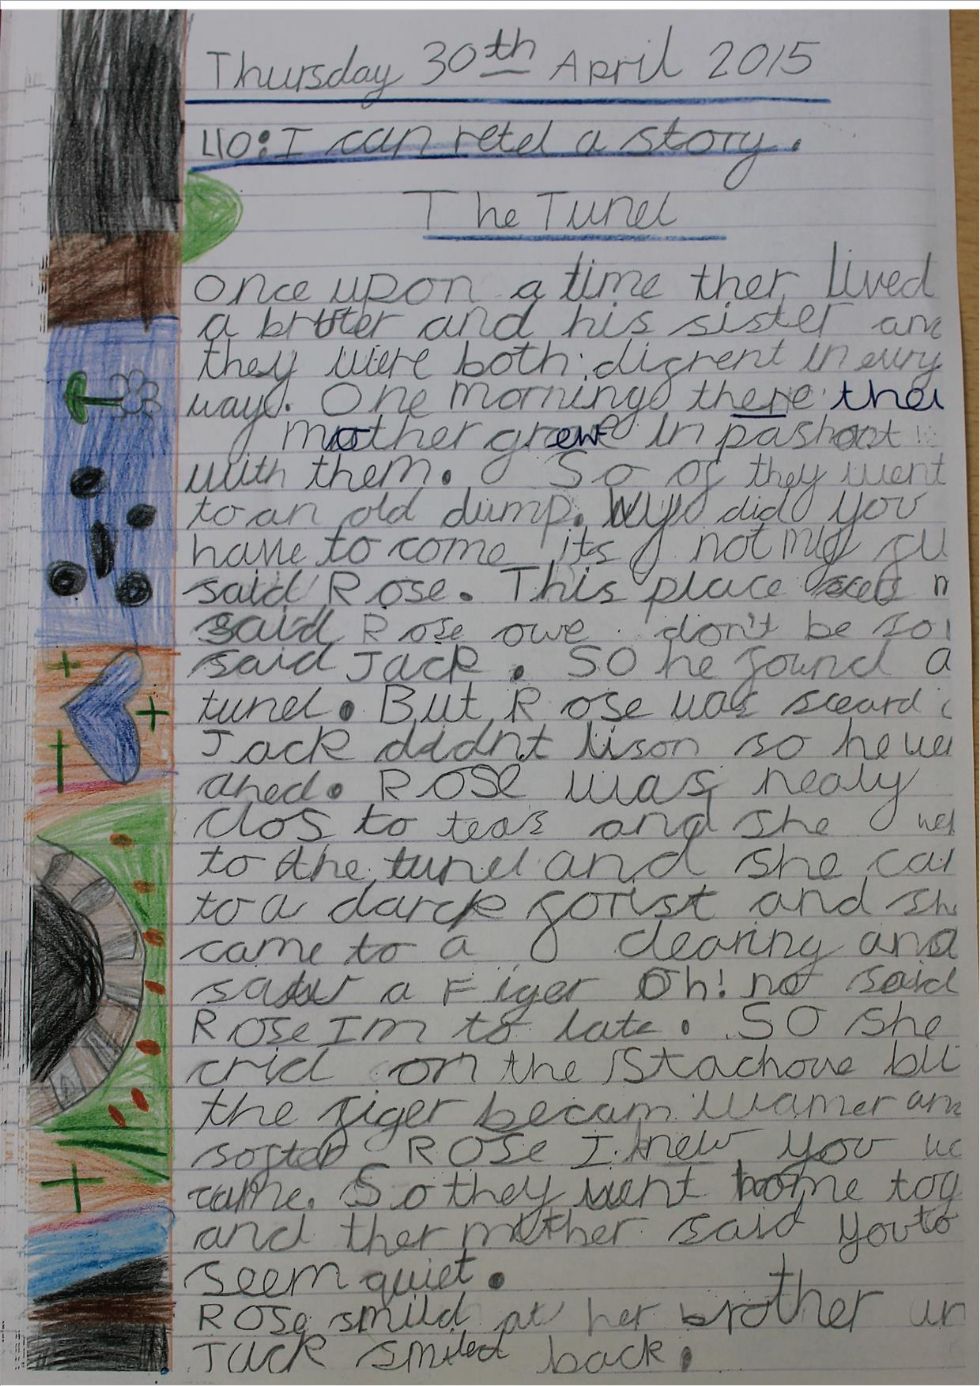 Thursday 30th April 2015
LIO: I can retel a story.
The Tunel
Once upon a time ther lived
a brother and his sister an
they were both difrent in evry
way. One morning there thei
mother grew inpashant
with them. So of they went
to an old dump. Wy did you
have to come its not my fu
said Rose. This place
said Rose owe don't be so
said Jack. So he found a
tunel. But Rose was sceard
Jack didnt lison so he we
ahed. Rose was nealy
clos to teas and she we
to the tunel and she ca
to a darck forist and sh
came to a clearing and
saw a Figer Oh! no said
Rose Im to late. So she
crid on the Stachove bu
the figer becam wamer an
softer Rose I knew you wo
came. So they went home tog
and ther mother said you to
seem quiet.
Rose smild at her brother an
Jack smiled back.